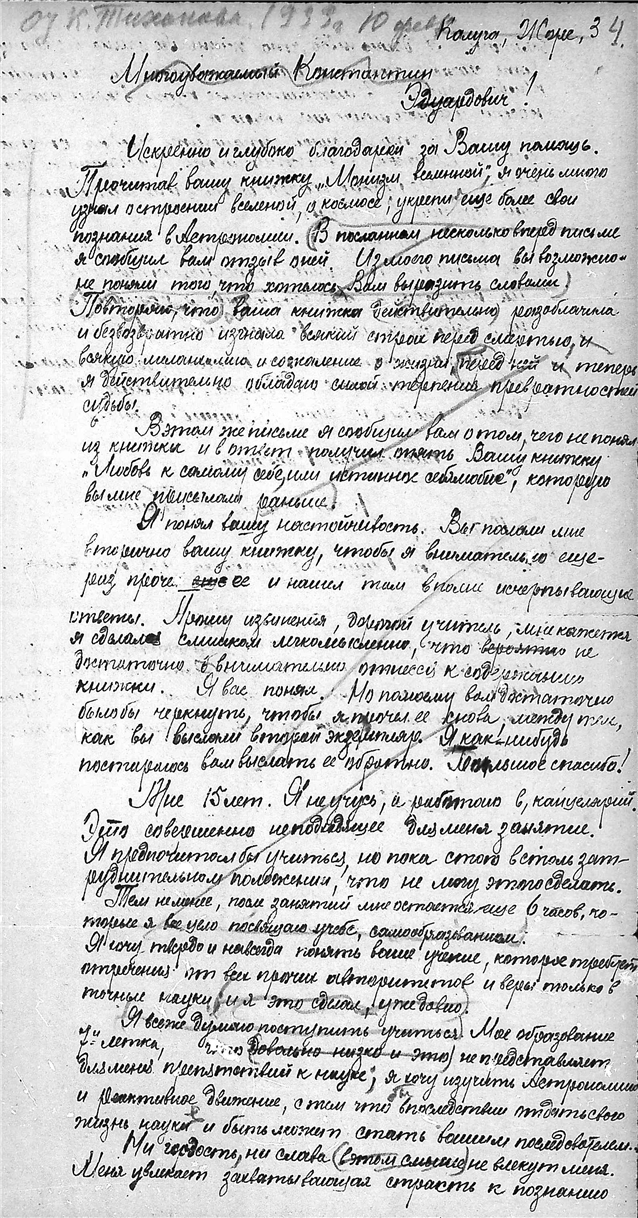 От К. Тихонова. 1933г 10 фев
Калуга, Жоре, 34.
Многоуважаемый Константин
Эдуардович!
Искренно и глубоко благодарен за Вашу помощь.
Прочитав вашу книжку „Монизм вселенной", я очень много
узнал о строении вселеной, о космосе; укрепил еще более свои
познания в Астрономии. (В посланном несколько вперед письме
я сообщил вам отзыв о ней. Из моего письма вы возможно
не поняли того что хотелось Вам выразить словами)
Повторяю, что) ваша книжка (действительно) разоблачила
и безвозвратно изгнала всякий страх перед смертью, и
всякую меланхолию и сожаление о жизни, перед ней и теперь
я действительно обладаю силой терпения превратностей
судьбы.
В этом же письме я сообщил вам о том, чего не понял
из книжки и в ответ получил опять Вашу книжку
„Любовь к самому себе, или истинное себялюбие", которую
вы мне (присылали раньше.)
Я понял вашу настойчивость. Вы послали мне
вторично вашу книжку, чтобы я внимательно еще-
раз проче ее и нашел там вполне исчерпывающие
ответы. Прошу извинения, дорогой учитель, мне кажется
я сделал слишком легкомысленно, что вероятно не
достаточно внимательно отнесся к содержанию
книжки. Я вас понял. Но помоему вам достаточно
было бы черкнуть, чтобы я прочел ее снова, между тем,
как вы выслали второй экземпляр. Я как-нибудь
постараюсь вам выслать ее обратно. Большое спасибо!
Мне 15 лет. Я не учусь, а работаю в канцелярий.
Это совершенно неподходящее для меня занятие.
Я предпочитал бы учиться, но пока стою в столь зат-
руднительном положении, что не могу этого сделать.
Тем не менее, после занятий мне остается еще 6 часов, ко-
торые я все цело посвящаю учебе, самообразованием.
Я хочу твердо и навсегда понять ваше учение, которое требует
отречения от всех прочих авторитетов и веры только в
точные науки и я это сделал, уже давно.
Я все же думаю поступить учиться. Мое образование
7-и летка, что (довольно низко и это) не представляет
для меня препятствий к науке; я хочу изучить Астрономию
и реактивное движение, с тем что бы впоследствии отдать свою
жизнь науке и быть может стать вашим последователем.
Ни гордость, ни слава (в этом смысле) не влекут меня.
Меня увлекает захватывающая страсть к познанию